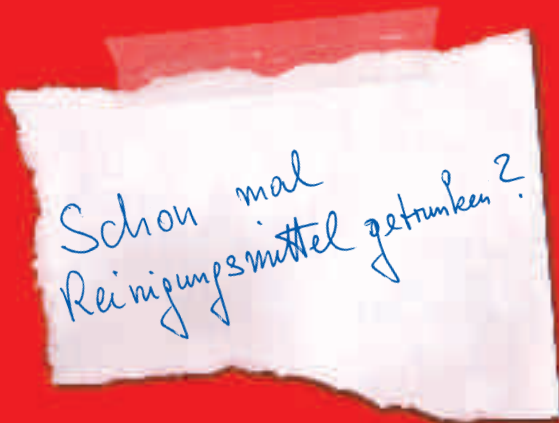 Schon mal
Reinigungsmittel getrunken?